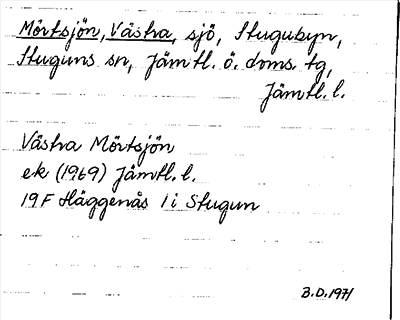 Mörtsjön, Västra, sjö, Stugubyn,
Stuguns sn, Jämtl. ö. doms. tg,
Jämtl. l.
Västra Mörtsjön
ek (1969) Jämtl. l.
19F Häggenås 1 i Stugun
B.D. 1971